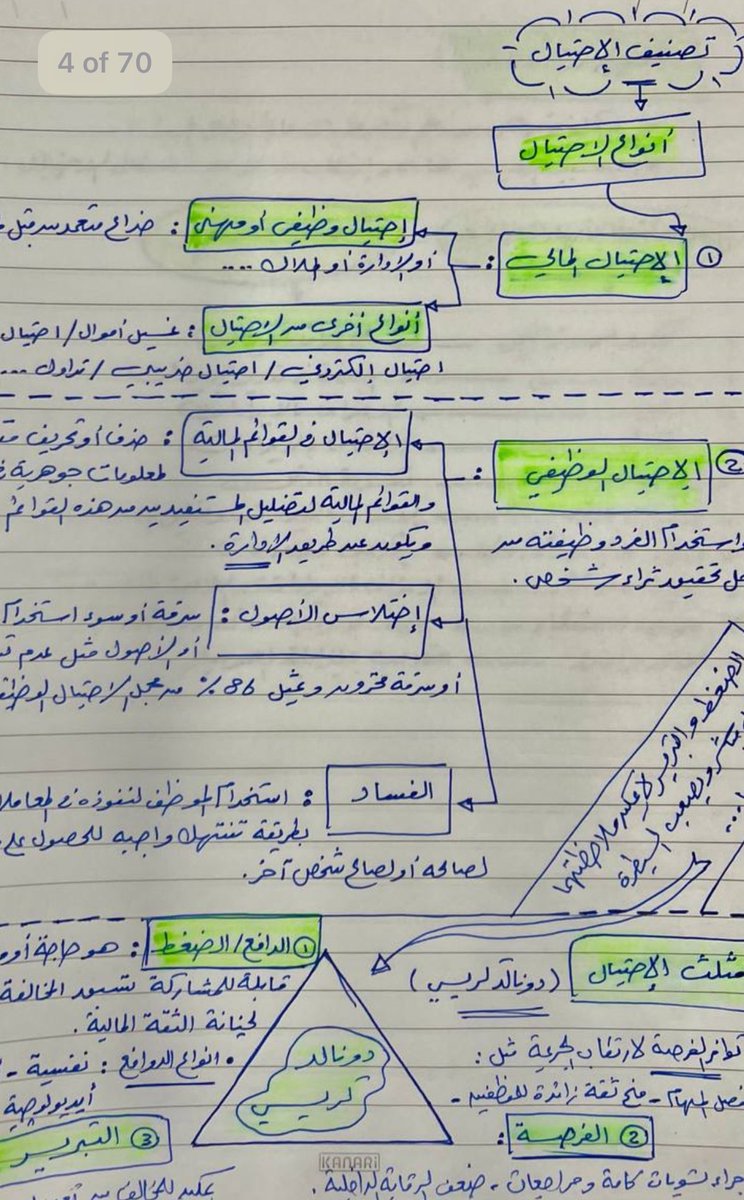 4 of 70
تصنيف الإحتيال
أنواع الإحتيال
① الإحتيال المالي :
إحتيال وظيفي أو مهني : خداع متعمد من قبل
أو الإدارة أو الملاك ....
أنواع أخرى من الإحتيال : غسيل أموال / احتيال
احتيال إلكتروني / احتيال ضريبي / تداول ...
② الإحتيال الوظيفي :
استخدام الفرد وظيفته من
تحقيق ثراء شخصي .
الإحتيال في القوائم المالية : حذف أو تحريف
لمعلومات جوهرية
والقوائم المالية لتضليل المستفيدين من هذه القوائم
ويكون عن طريق الإدارة .
إختلاس الأصول : سرقة أو سوء استخدام
أو الأصول مثل عدم
أو سرقة مخزون ويمثل 86 % من مجمل الاحتيال
الفساد : استخدام الموظف لنفوذه في
بطريقة تنتهك واجبه للحصول على
لصالحه أو لصالح شخص آخر .
الضغط والتبرير لا يمكن ملاحظتها
ويصعب السيطرة
مثلث الإحتيال ( دونالد كريسي )
دونالد
كريسي
① الدافع / الضغط : هو حاجة أو
قابلة للمشاركة تسود المخالفة
لخيانة الثقة المالية .
• أنواع الدوافع : نفسية -
أيديولوجية
توافر الفرصة لارتكاب الجريمة مثل :
المهام - منح ثقة زائدة للموظفين -
② الفرصة :
تسويات كاملة ومراجعات - ضعف الرقابة الداخلية .
③ التبرير
يمكن للمخالف من
KANARI